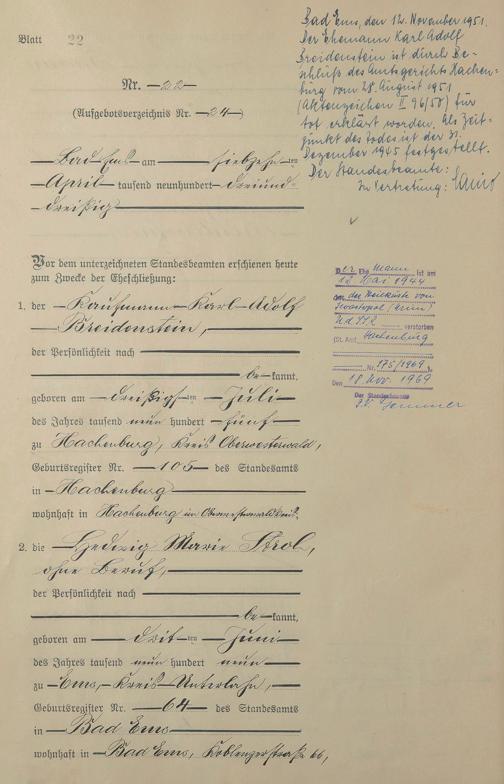 Blatt 22
Nr. 22
(Aufgebotsverzeichnis Nr. 24)
Bad Ems am siebzehnten
April tausend neunhundert dreiund-
dreißig
Bad Ems, den 12. November 1951.
Der Ehemann Karl Adolf
Breidenstein ist durch Be-
schluß des Amtsgerichts Hachen-
burg vom 28. August 1951
(Aktenzeichen II 96/50) für
tot erklärt worden. Als Zeit-
punkt des Todes ist der 31.
Dezember 1945 festgestellt.
Der Standesbeamte:
In Vertretung:
Vor dem unterzeichneten Standesbeamten erschienen heute
zum Zwecke der Eheschließung:
1. der Kaufmann Karl Adolf
Breidenstein,
der Persönlichkeit nach
bekannt,
geboren am dreißigsten Juli
des Jahres tausend neun hundert fünf
zu Hachenburg, Kreis Oberwesterwald,
Geburtsregister Nr. 105 des Standesamts
in Hachenburg
wohnhaft in Hachenburg im Oberwesterwaldkreis.
Der Ehemann ist am
12. Mai 1944
an der Westküste von
Sewastopol (Krim)
verstorben
(St. Amt Hachenburg
Nr. 175/1969).
Den 18. Nov. 1969
Der Standesbeamte
I.V.
2. die Hedwig Marie Strob,
ohne Beruf,
der Persönlichkeit nach
bekannt,
geboren am dritten Juni
des Jahres tausend neun hundert neun
zu Ems, Kreis Unterlahn,
Geburtsregister Nr. 64 des Standesamts
in Bad Ems
wohnhaft in Bad Ems, Koblenzerstraße 66,